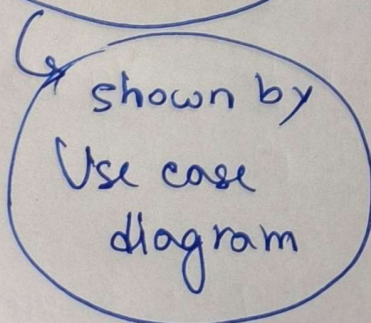 shown by
Use case
diagram